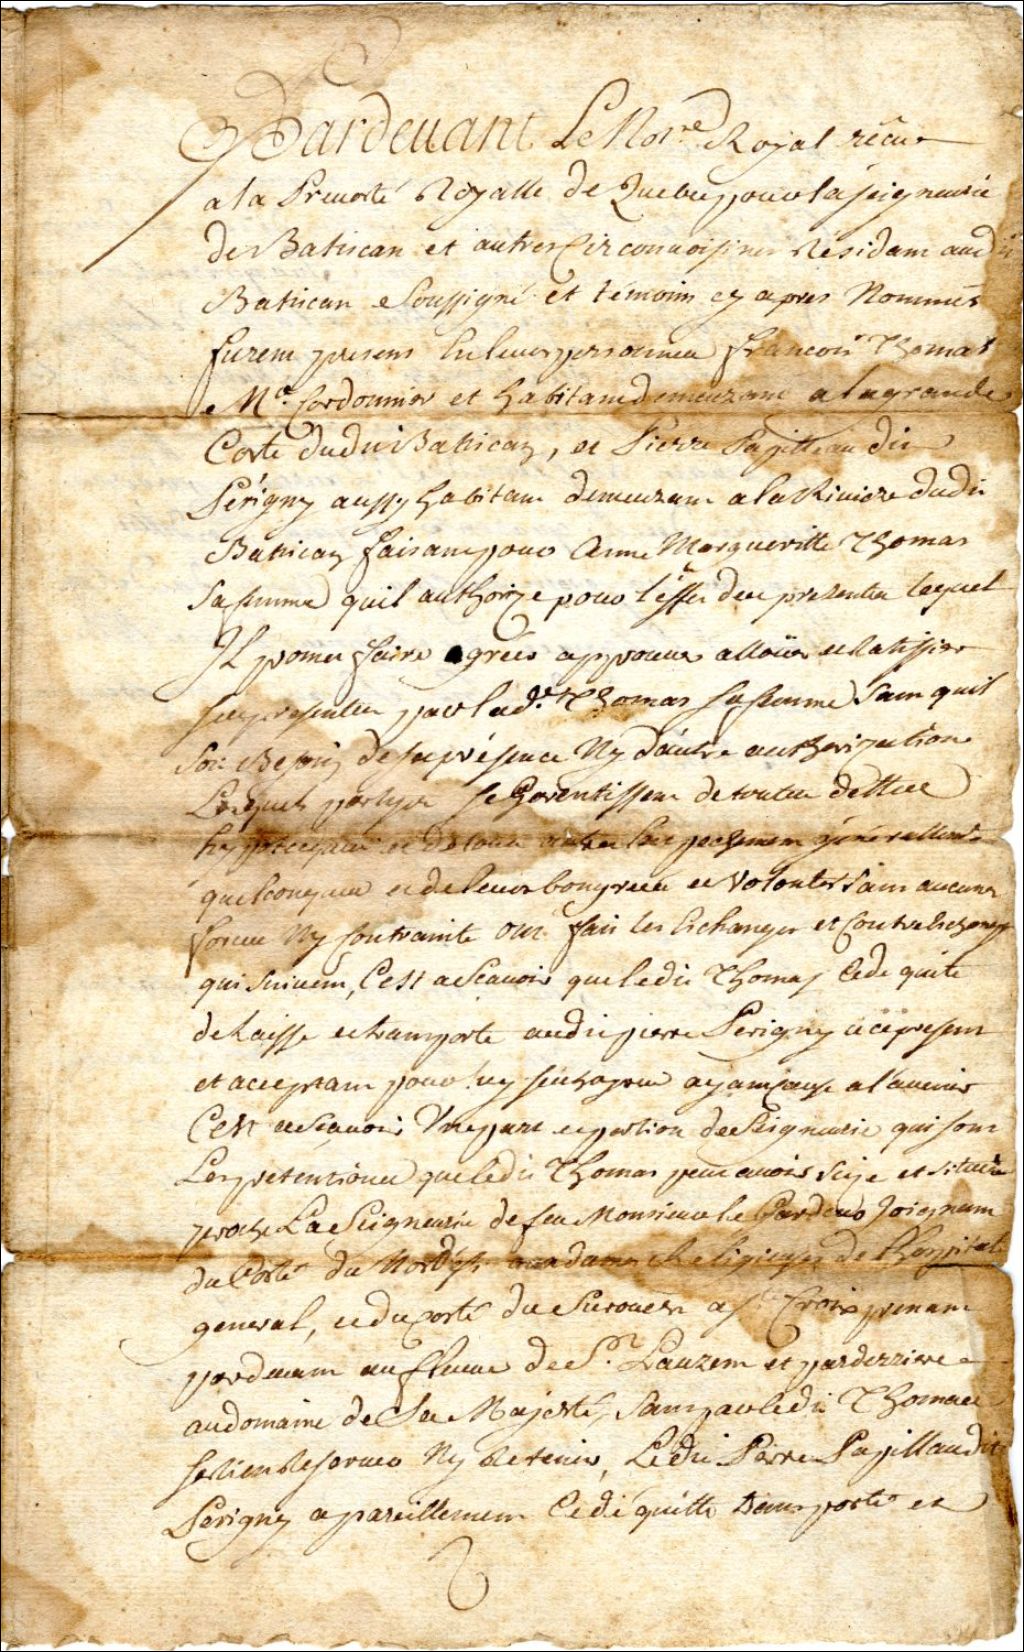 Pardevant Le Not.re Royal recue
a la Prevosté Royalle de Quebec pour la seigneurie
de Batiscan et autres Circonvoisines Residant aud
Batiscan Soussigné et temoins cy apres Nommés
furent presens En leurs personnes françois Thomas
Me. Cordonnier et habitant demeurant a la grande
Coste dudit Batiscan, et Pierre Papilleau dit
Périgny aussy habitant demeurant a la Riviere dudit
Batiscan faisant pour Anne Margueritte Thomas
Sa femme quil authorize pour l'effet des presentes lequel
Il promet faire agréer approuver alloüer et Ratiffier
ses presentes par lad.te Thomas sa femme Sans quil
Soit Besoin de sa présence Ny dautre authorization
Lesquels partyes se Garentissent de toutes dettes
hypotecques et de tous autres Empechemens généralement
quelconques et de leurs bon grée et volontés sans aucunes
force Ny Contrainte ont fait les Echanges et Contrechanges
qui suivent, C'est a Scavoir que ledit Thomas Cede quite
delaisse et transporte audit pierre Perigny a ce present
et acceptant pour luy ses hoirs ayant cause a l'avenir
C'est a Scavoir Une part et portion de Seigneurie qui sont
Les pretentions que ledit Thomas peut avoir size et scituée
proche La Seigneurie de feu Monsieur le Gardeur Joignant
du Costé du Nord aux dames Religieuses de l'hospital
general, et du costé du Surouest a Ste Croix prenant
pardevant au fleuve de St. Laurent et par derriere
au domaine de Sa Majesté, Sans par ledit Thomas
se Rien Reserver Ny Retenir, Ledit Pierre Papillaudit
Perigny a pareillement Cedé quitté transporté et